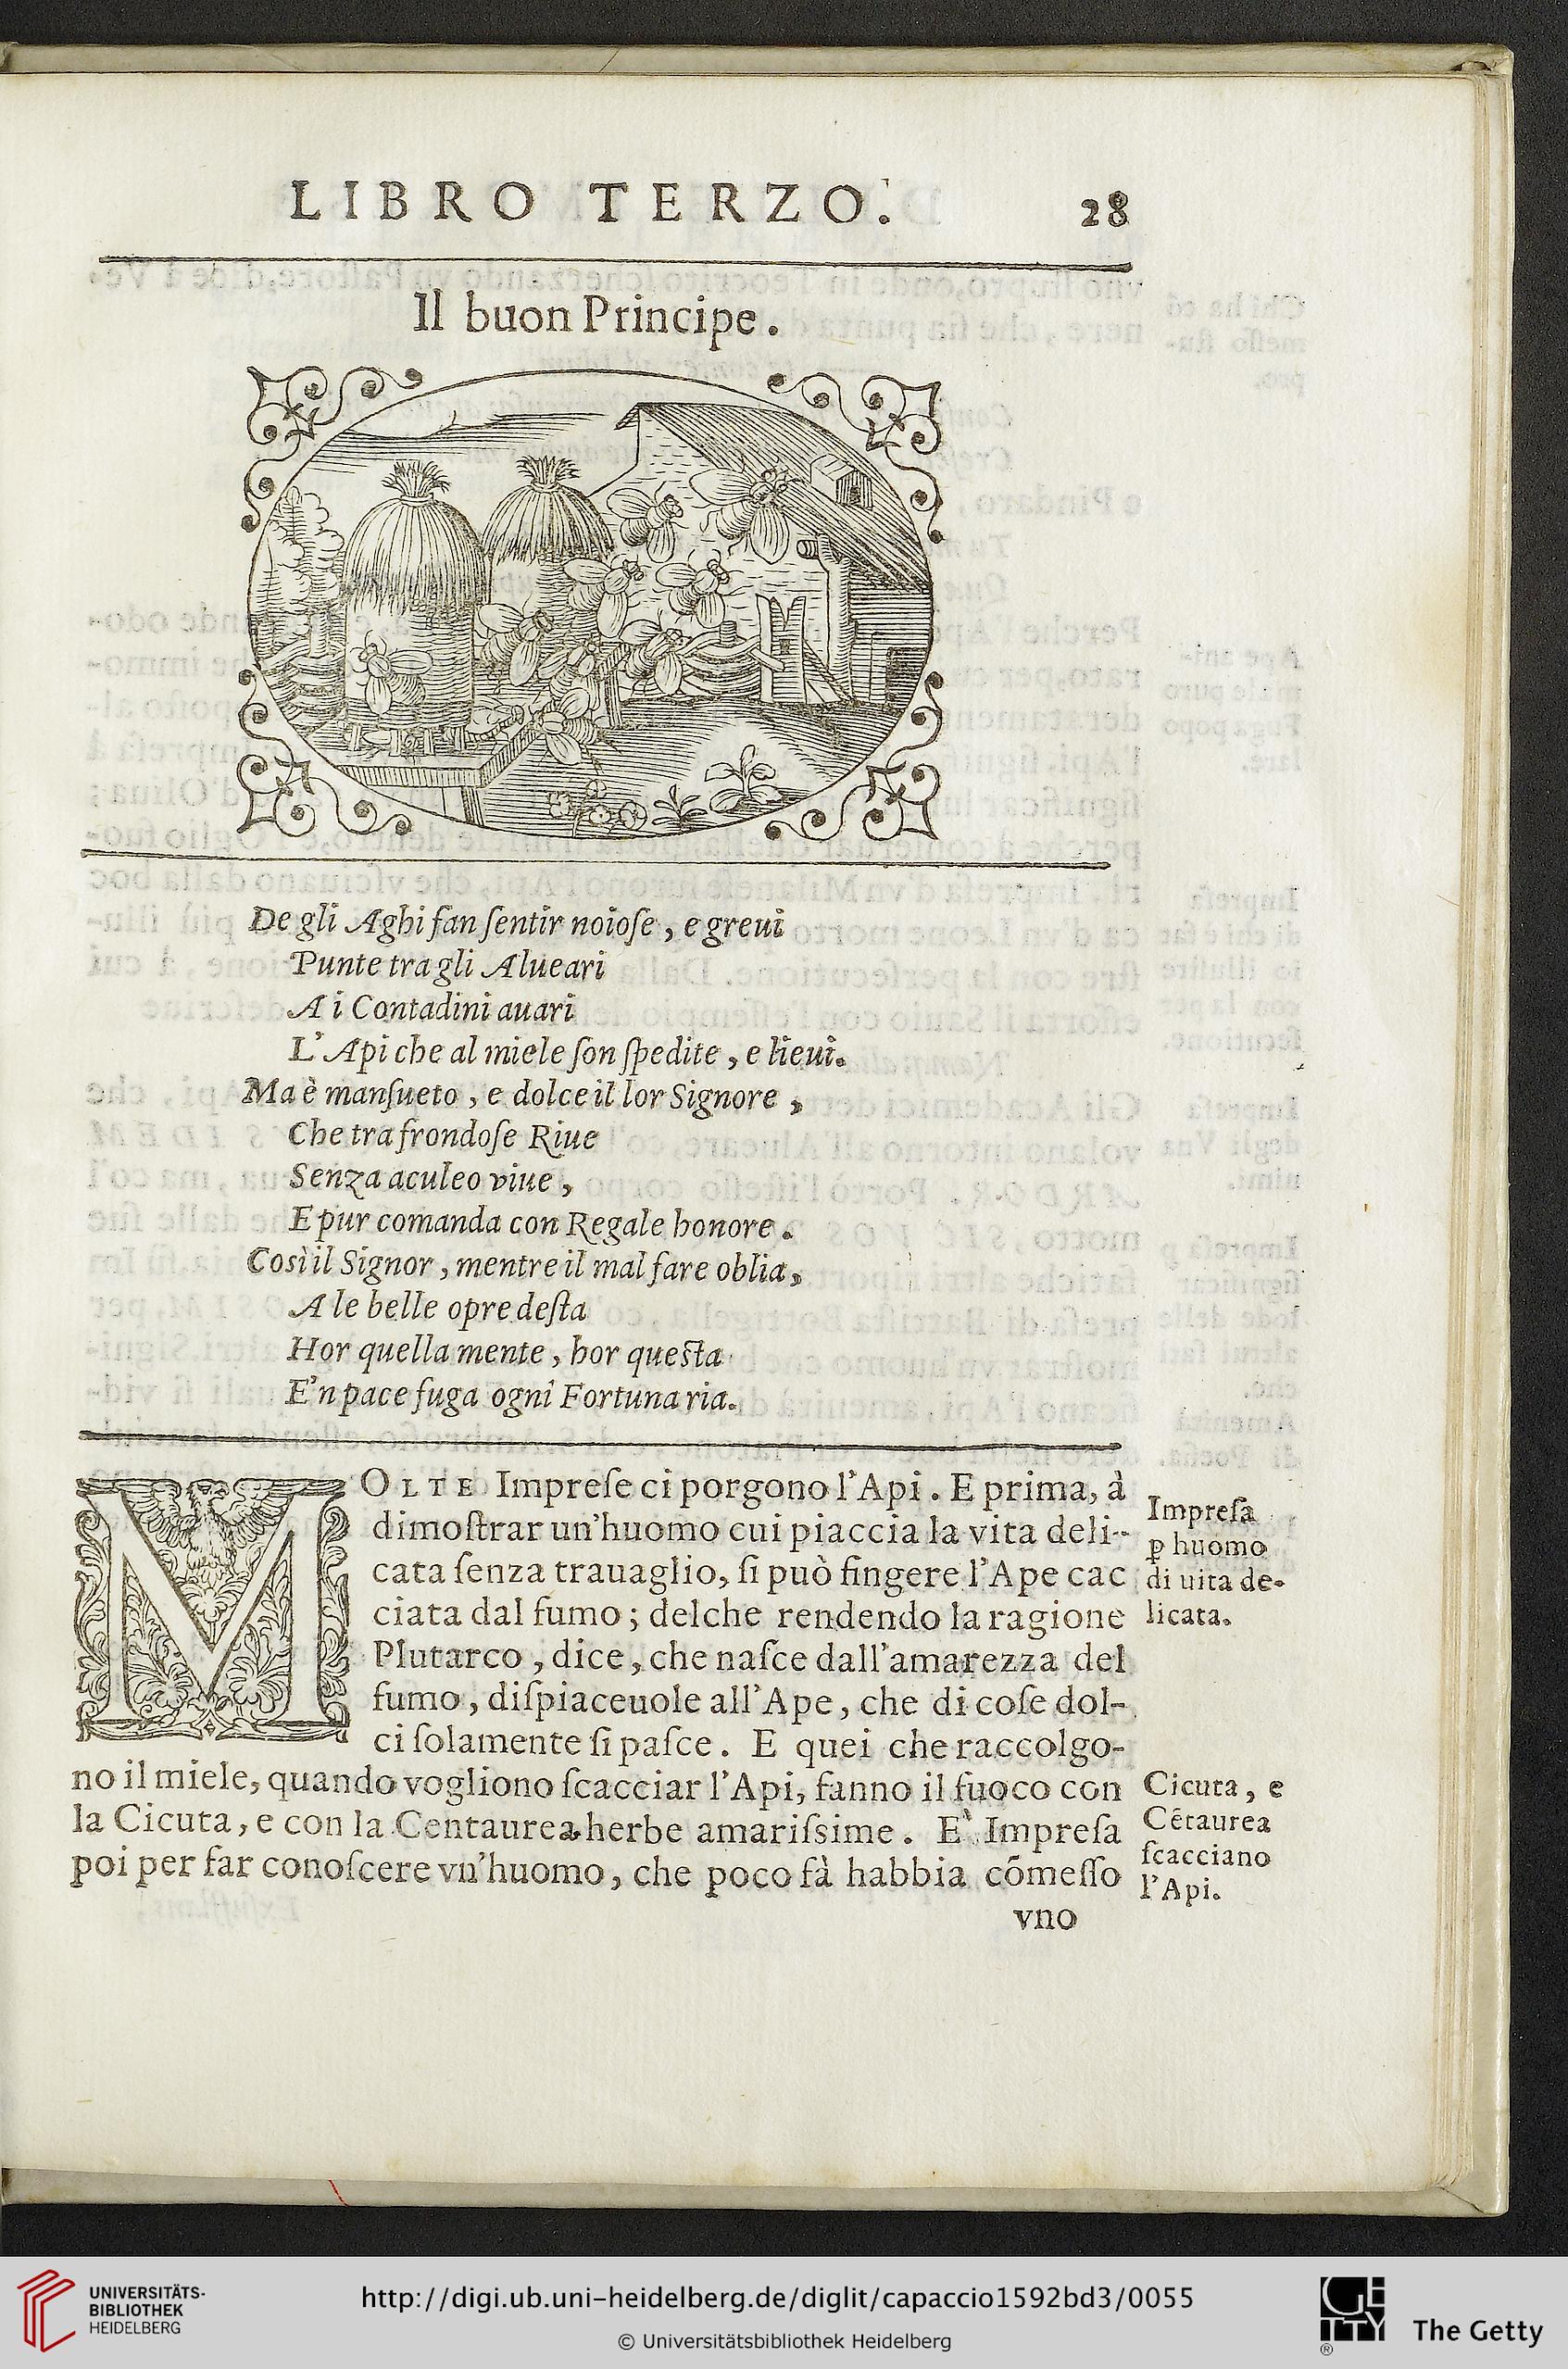 LIBRO TERZO.
28
Il buon Principe.
De gli Aghi fan ſentir noioſe, e greui
Punte tra gli Alueari
A i Contadini auari
L'Api che al miele ſon ſpedite, e lieui.
Ma è manſueto, e dolce il lor Signore,
Che tra frondoſe Riue
Senza aculeo viue,
E pur comanda con Regale honore.
Così il Signor, mentre il mal fare oblia,
A le belle opre deſta
Hor quella mente, hor queſta
E'n pace fuga ogni Fortuna ria.
MOLTE Impreſe ci porgono l'Api. E prima, à
dimoſtrar un'huomo cui piaccia la vita deli-
cata ſenza trauaglio, ſi può fingere l'Ape cac
ciata dal fumo; delche rendendo la ragione
Plutarco, dice, che naſce dall'amarezza del
fumo, diſpiaceuole all'Ape, che di coſe dol-
ci ſolamente ſi paſce. E quei che raccolgo-
no il miele, quando vogliono ſcacciar l'Api, fanno il fuoco con
la Cicuta, e con la Centaurea herbe amariſsime. E' Impreſa
poi per far conoſcere vn'huomo, che poco fà habbia cõmeſſo
vno
Impreſa
ꝑ huomo
di uita de-
licata.
Cicuta, e
Cẽtaurea
ſcacciano
l'Api.
UNIVERSITÄTS-
BIBLIOTHEK
HEIDELBERG
http://digi.ub.uni-heidelberg.de/diglit/capaccio1592bd3/0055
© Universitätsbibliothek Heidelberg
GETTY
®
The Getty